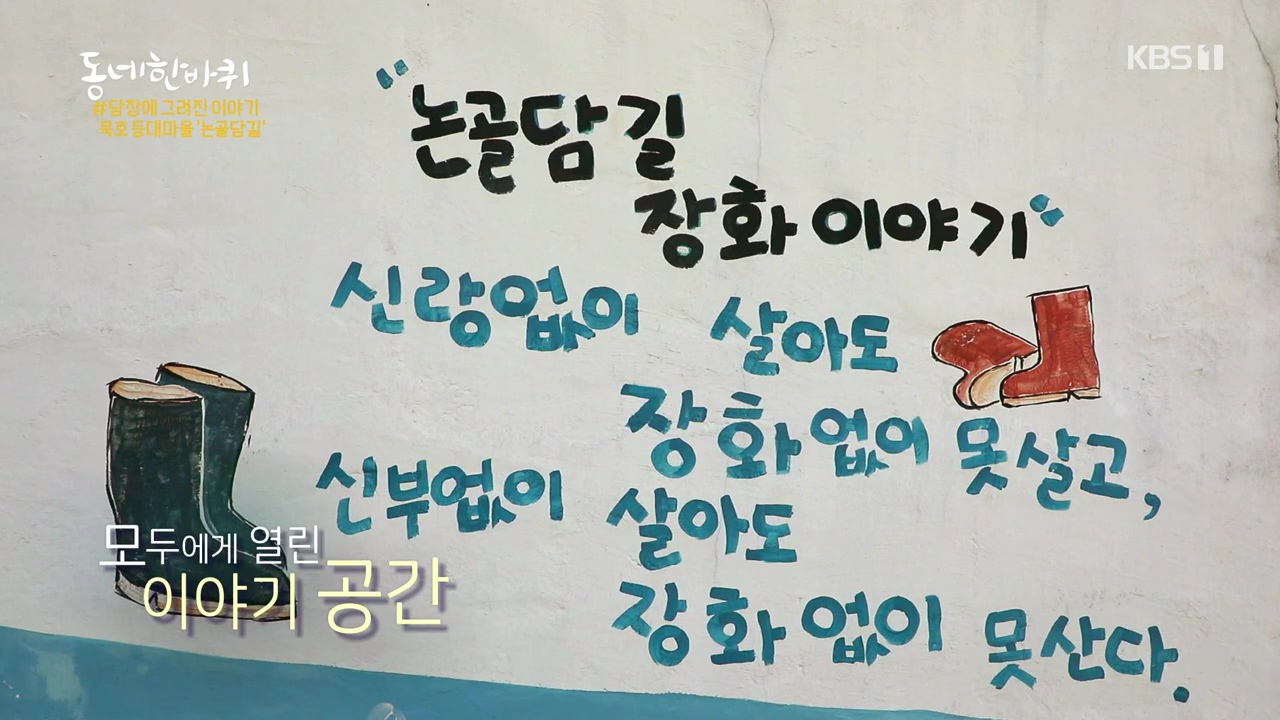 동네한바퀴
#담장에 그려진 이야기
묵호 등대마을 '논골담길'
KBS 1
"논골담길
장화 이야기"
신랑없이 살아도
장화 없이 못살고,
신부없이 살아도
장화 없이 못산다.
모두에게 열린
이야기 공간